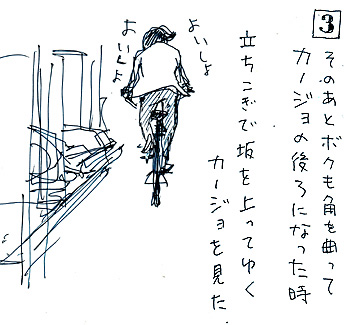 3
そのあとボクも角を曲って
カージョの後ろになった時
立ちこぎで坂を上ってゆく
カージョを見た.
よいしょ
よいしょ